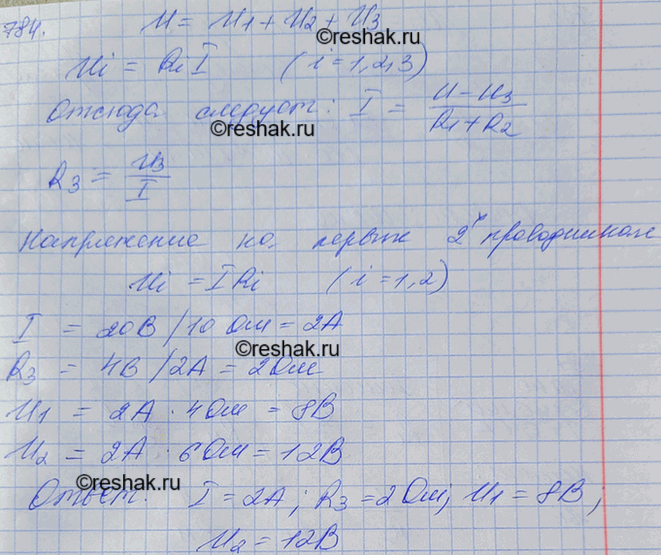 784. U = U₁ + U₂ + U₃
©reshak.ru
Ui = Ri I (i = 1,2,3)
Отсюда следует: I = (U - U₃)/(R₁ + R₂)
©reshak.ru
R₃ = U₃/I
Напряжение на первых 2ˣ проводниках
Ui = I Ri (i = 1,2)
I = 20В/10 Ом = 2А
©reshak.ru
R₃ = 4В/2А = 2Ом
U₁ = 2А · 4Ом = 8В
U₂ = 2А · 6Ом = 12В
©reshak.ru
Ответ: I = 2А; R₃ = 2Ом; U₁ = 8В;
U₂ = 12В